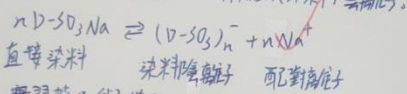 nD-SO₃Na ⇌ (D-SO₃)ₙ⁻ + nNa⁺
直接染料 染料陰離子 配對離子